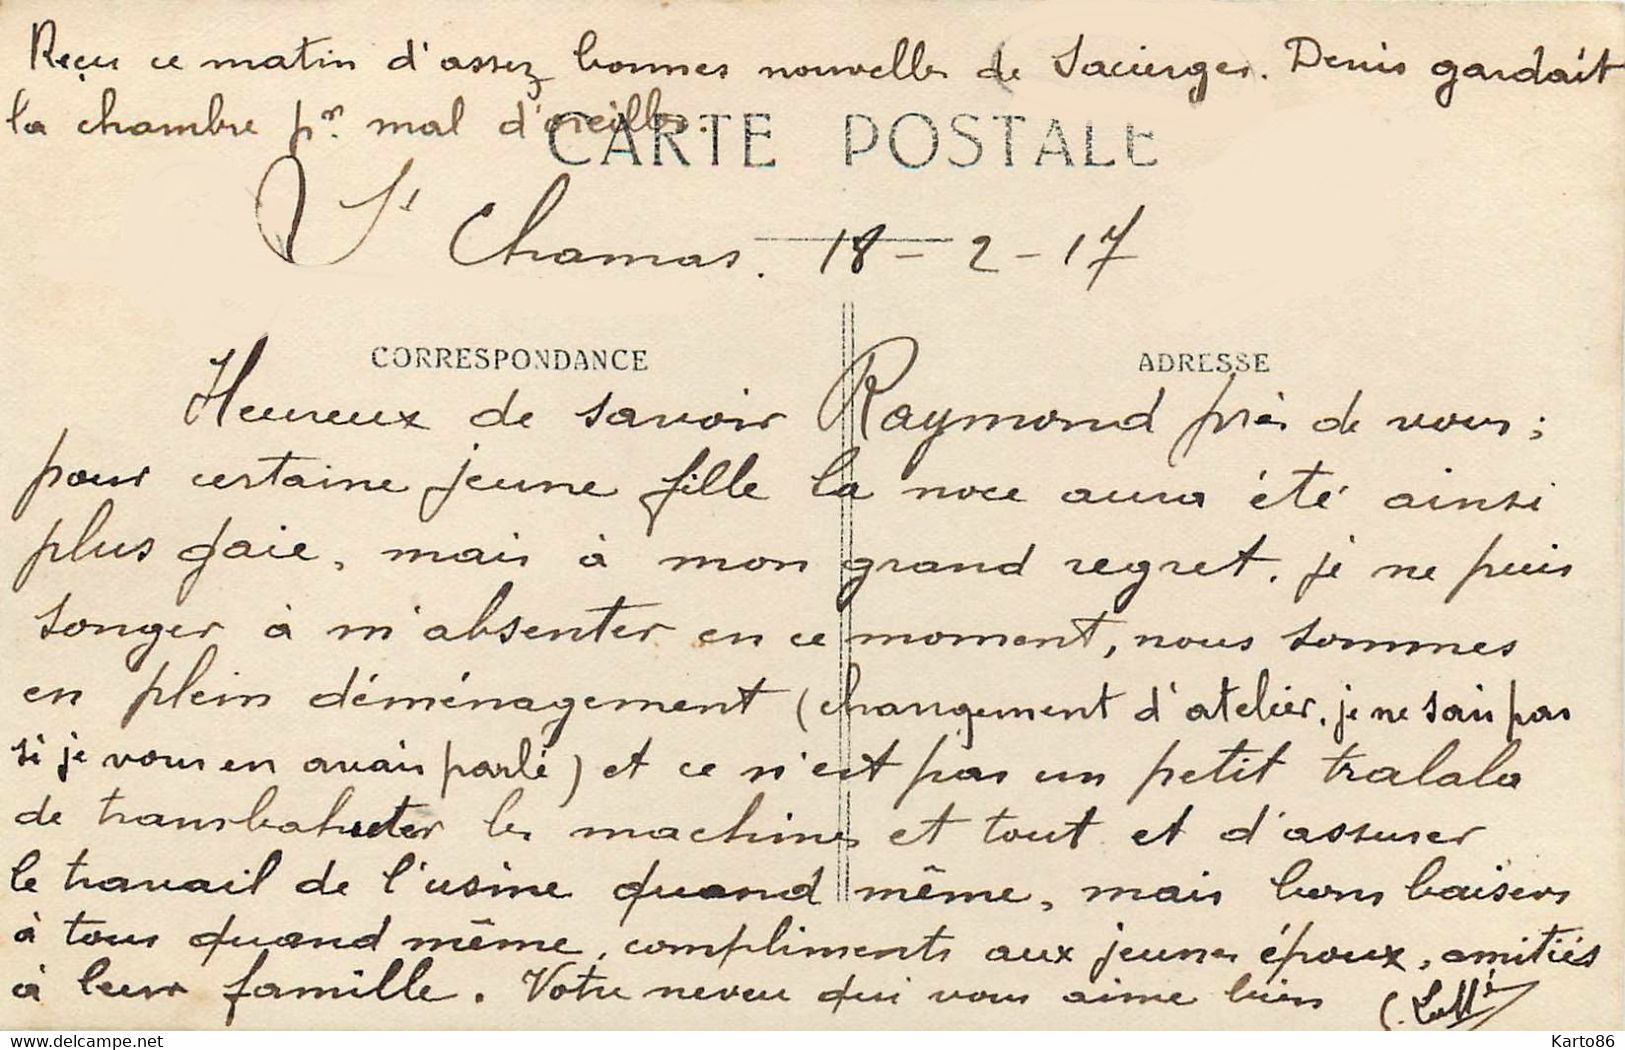 Reçu ce matin d'assez bonnes nouvelles de Sacierges. Denis gardait
la chambre pr. mal d'oreilles.
CARTE POSTALE
St Chamas. 18-2-17
CORRESPONDANCE
ADRESSE
Heureux de savoir Raymond près de vous ;
pour certaine jeune fille la noce aura été ainsi
plus gaie, mais à mon grand regret, je ne puis
songer à m'absenter en ce moment, nous sommes
en plein déménagement (changement d'atelier, je ne sais pas
si je vous en avais parlé) et ce n'est pas un petit tralala
de transbahuter les machines et tout et d'assurer
le travail de l'usine quand même, mais bons baisers
à tous quand même, compliments aux jeunes époux, amitiés
à leur famille. Votre neveu qui vous aime bien
delcampe.net
Karto86